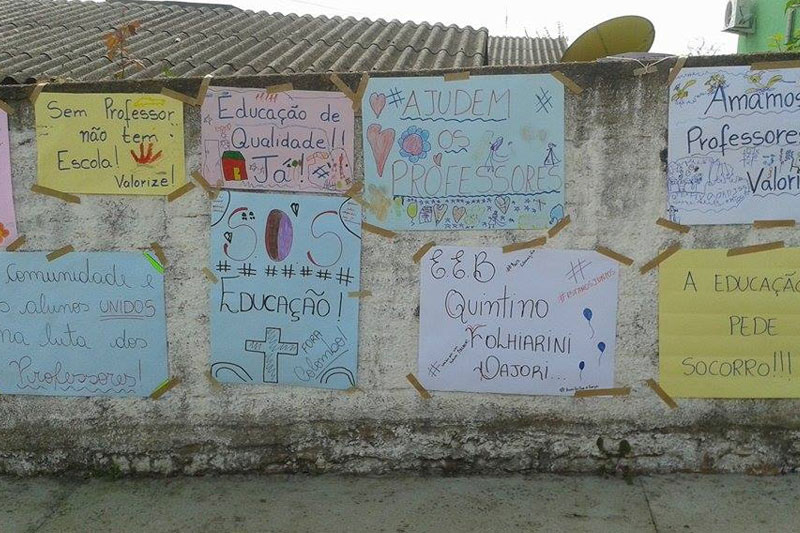 Sem Professor
não tem
Escola!
Valorize!
Educação de
Qualidade!!
Já!
#AJUDEM #
OS
PROFESSORES
Amamos
Professores
Valori
Comunidade e
alunos UNIDOS
na luta dos
Professores!
S.O.S
######
EDUCAÇÃO!
FORA
Colombo!
E.E.B
Quintino
Folhiarini
Dajori...
A EDUCAÇÃO
PEDE
SOCORRO!!!